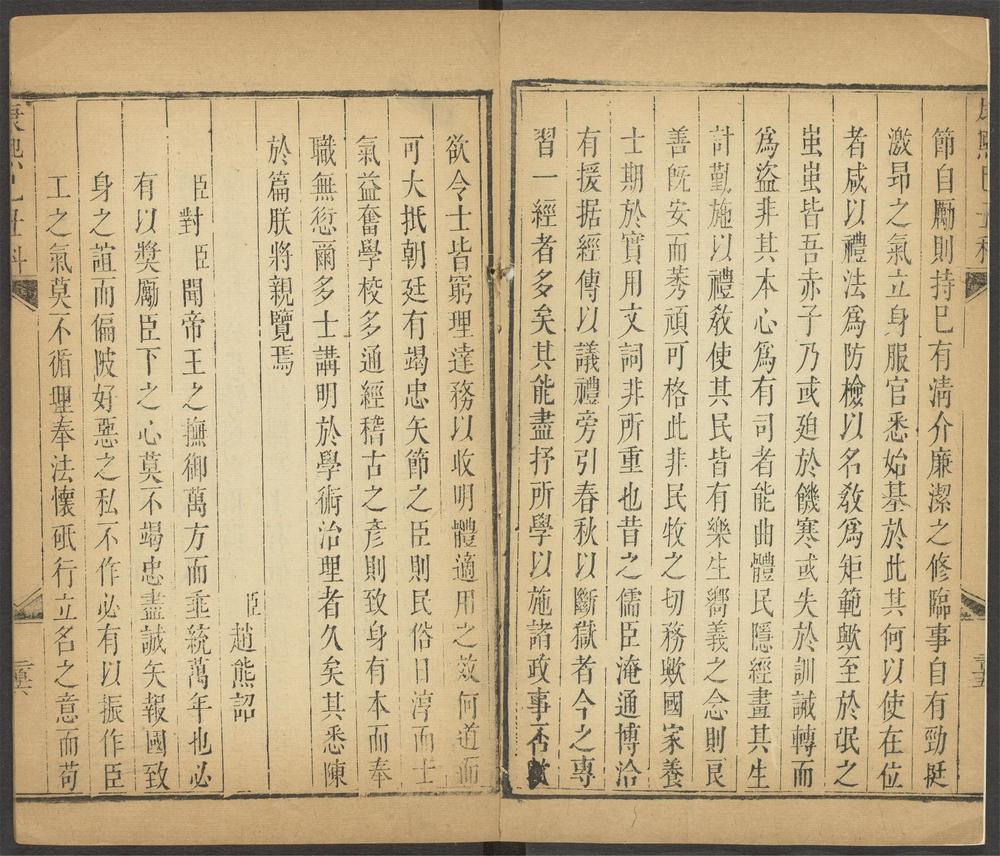 康熙己丑科
節自勵則持已有淸介廉潔之修臨事自有勁挺
激昂之氣立身服官悉始基於此其何以使在位
者咸以禮法爲防檢以名敎爲矩範歟至於氓之
蚩蚩皆吾赤子乃或廹於饑寒或失於訓誡轉而
爲盜非其本心爲有司者能曲體民隱經畫其生
計勤施以禮敎使其民皆有樂生嚮義之念則良
善旣安而莠頑可格此非民牧之切務歟國家養
士期於實用文詞非所重也昔之儒臣淹通博洽
有援据經傳以議禮旁引春秋以斷獄者今之專
習一經者多矣其能盡抒所學以施諸政事否歟
欲令士皆窮理達務以收明體適用之效何道而
可大抵朝廷有竭忠矢節之臣則民俗日淳而士
氣益奮學校多通經稽古之彥則致身有本而奉
職無愆爾多士講明於學術治理者久矣其悉陳
於篇朕將親覽焉
臣趙熊詔
臣對臣聞帝王之撫御萬方而垂統萬年也必
有以奬勵臣下之心莫不竭忠盡誠矢報國致
身之誼而偏陂好惡之私不作必有以振作臣
工之氣莫不循理奉法懷砥行立名之意而苟
康熙己丑科